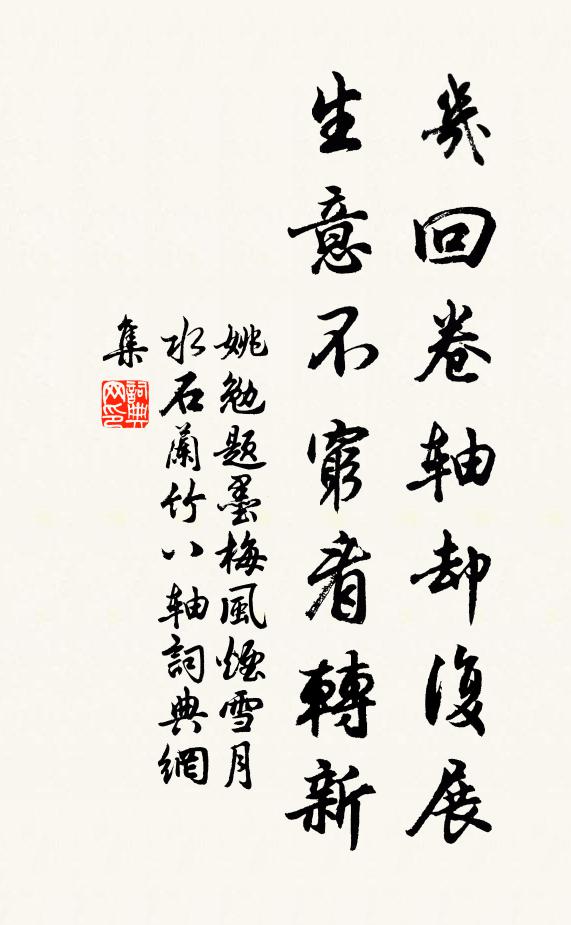 幾回卷轴却復展
生意不窮看轉新
姚勉題墨梅風煙雪月
水石蘭竹八轴詞典網
集
詞典
网印